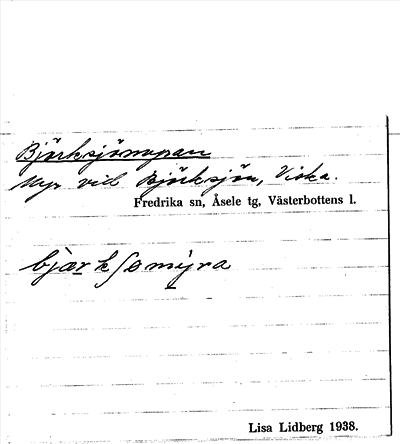 Björksjömyran
Myr vid Björksjön, Viska.
Fredrika sn, Åsele tg, Västerbottens l.
bjær k ʃɵ my̱ra
Lisa Lidberg 1938.